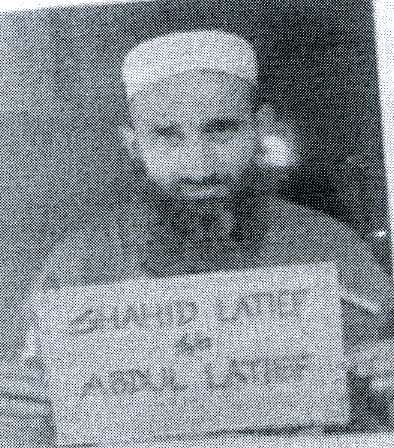 SHAHID LATIEF
S/o
ABDUL LATIEF